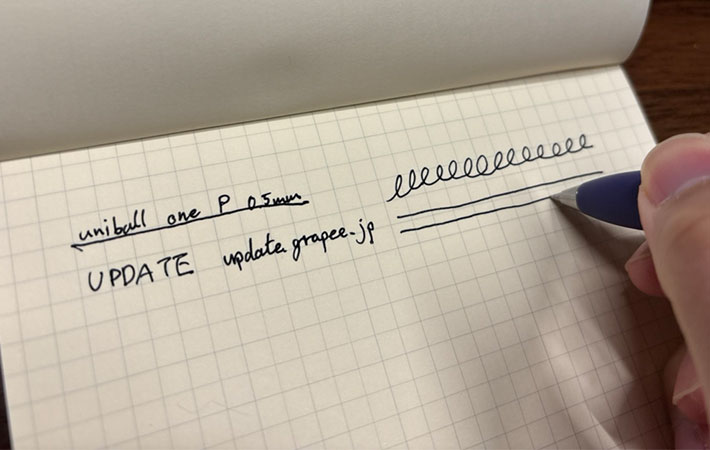 uniball one P 0.5mm
UPDATE update.grapee.jp